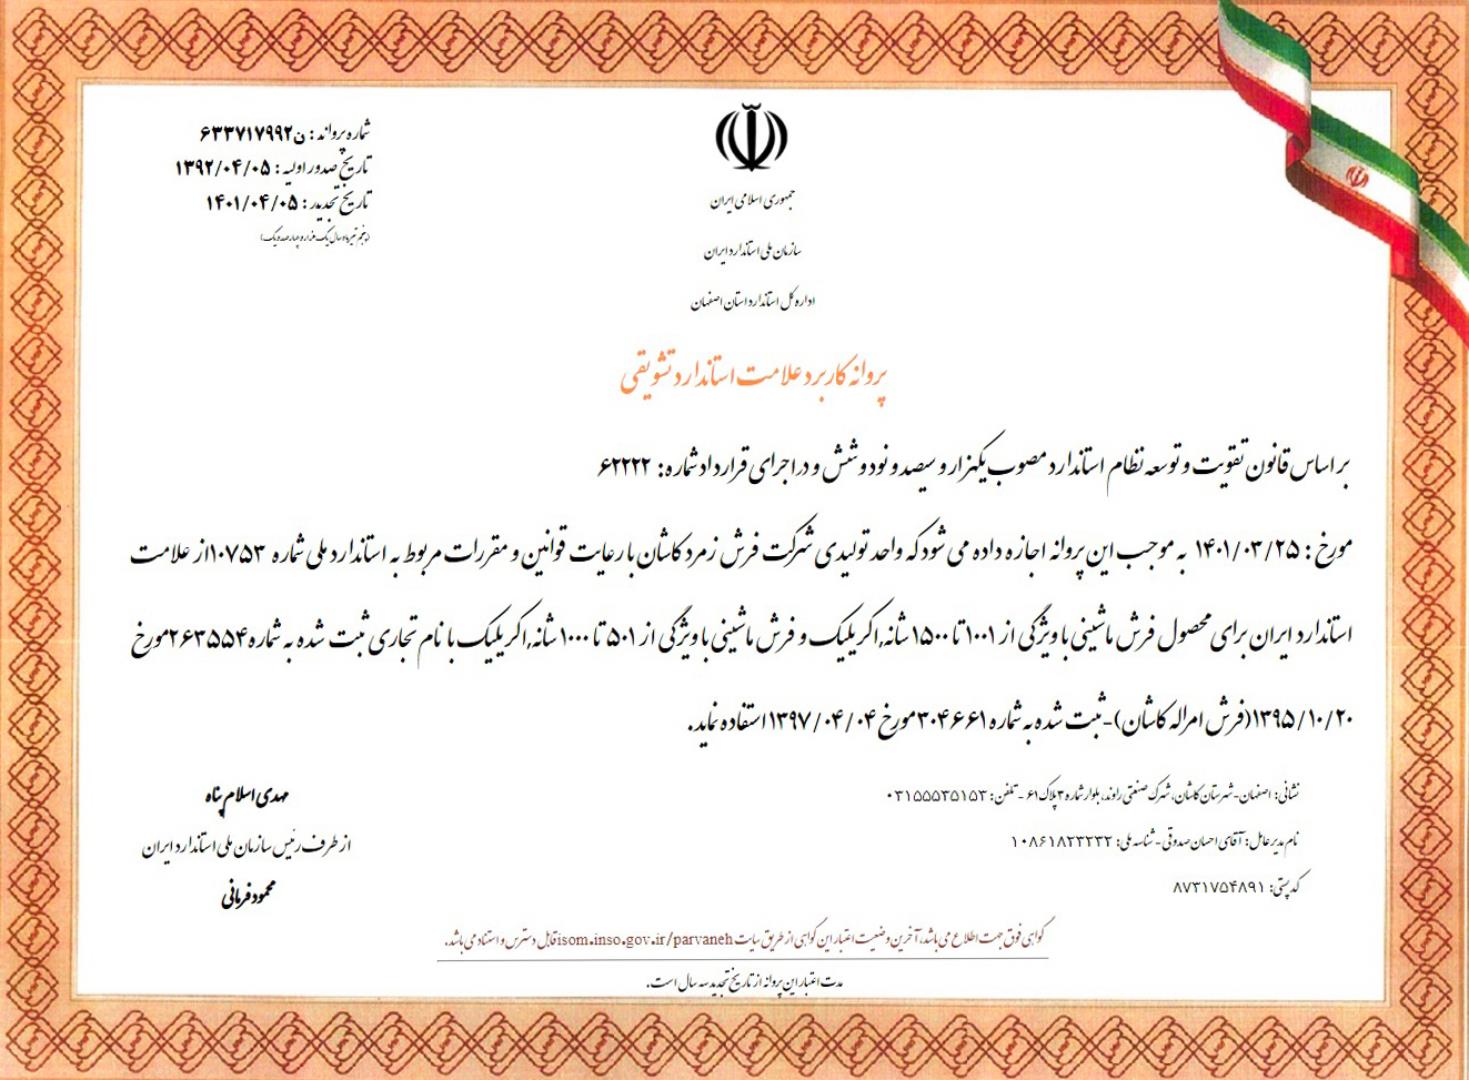 شماره پروانه : ن۶۳۳۷۱۷۹۹۲
تاریخ صدور اولیه : ۱۳۹۲/۰۴/۰۵
تاریخ تجدید : ۱۴۰۱/۰۴/۰۵
(پنجم تیر ماه سال یک هزار و چهارصد و یک)
جمهوری اسلامی ایران
سازمان ملی استاندارد ایران
اداره کل استاندارد استان اصفهان
پروانه کاربرد علامت استاندارد تشویقی
بر اساس قانون تقویت و توسعه نظام استاندارد مصوب یکهزار و سیصد و نود و شش و در اجرای قرارداد شماره : ۶۲۲۲۲
مورخ : ۱۴۰۱/۰۳/۲۵ به موجب این پروانه اجازه داده می شود که واحد تولیدی شرکت فرش زمرد کاشان با رعایت قوانین و مقررات مربوط به استاندارد ملی شماره ۱۰۷۵۳از علامت
استاندارد ایران برای محصول فرش ماشینی با ویژگی از ۱۰۰۱ تا ۱۵۰۰ شانه,اکریلیک و فرش ماشینی با ویژگی از ۵۰۱ تا ۱۰۰۰ شانه,اکریلیک با نام تجاری ثبت شده به شماره ۲۶۳۵۵۴مورخ
۱۳۹۵/۱۰/۲۰(فرش امراله کاشان)-ثبت شده به شماره ۳۰۴۶۶۱مورخ ۱۳۹۷/۰۴/۰۴ استفاده نماید.
نشانی: اصفهان-شهرستان کاشان, شهرک صنعتی راوند, بلوار شماره ۳ پلاک ۶۱ - تلفن: ۰۳۱۵۵۵۳۵۱۵۳
نام مدیر عامل: آقای احسان صدوقی - شناسه ملی: ۱۰۸۶۱۸۲۳۲۳۲
کد پستی: ۸۷۳۱۷۵۴۸۹۱
مهدی اسلام پناه
از طرف رئیس سازمان ملی استاندارد ایران
محمود فرمانی
گواهی فوق جهت اطلاع می باشد، آخرین وضعیت اعتبار این گواهی از طریق سایت isom.inso.gov.ir/parvaneh قابل دسترس و استناد می باشد.
مدت اعتبار این پروانه از تاریخ تجدید سه سال است.